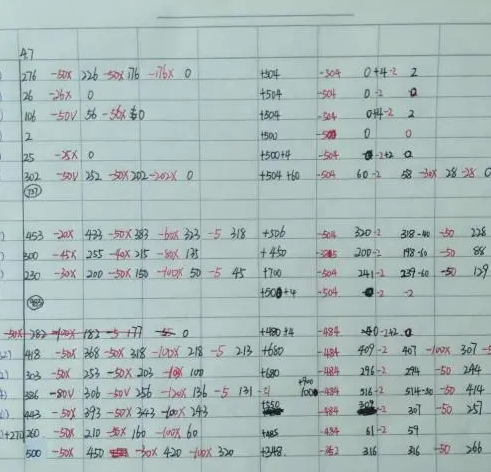 4.7
276 -50x 226 -50x 176 -176x 0 +504 -504 0+4-2 2
26 -26x 0 +504 -504 0-2 0
106 -50V 56 -56x 0 +504 -504 0+4-2 2
2 +500 -500 0 0
25 -25x 0 +500+4 -504 -2+2 0
302 -50V 252 -50x 202 -202x 0 +504+60 -504 60-2 58 -30x 28 -28 0
737
453 -20x 433 -50x 383 -60x 323 -5 318 +506 -504 320-2 318-40 -50 228
300 -45x 255 -40x 215 -80x 135 +450 200-2 198-60 -50 88
230 -30x 200 -50x 150 -100x 50 -5 45 +700 -504 241-2 239-60 -50 129
+500+4 -504 -2 -2
983
-50x 282 -100x 182 -5 177 0 +480+4 -484 -2+2 0
418 -50x 368 -50x 318 -100x 218 -5 213 +680 -484 409-2 407 -100x 307
303 -50x 253 -50x 203 100 +680 -484 296-2 294 -50 244
386 -80V 306 -50V 256 -120x 136 -5 131 -484 516-2 514-50 -50 414
443 -50x 393 -50x 343 -100x 243 -484 307 -50 257
+270 260 -50x 210 -50x 160 -100x 60 +485 -484 61-2 59
500 -50x 450 -30x 420 -100x 320 +348 316 316 -50 266